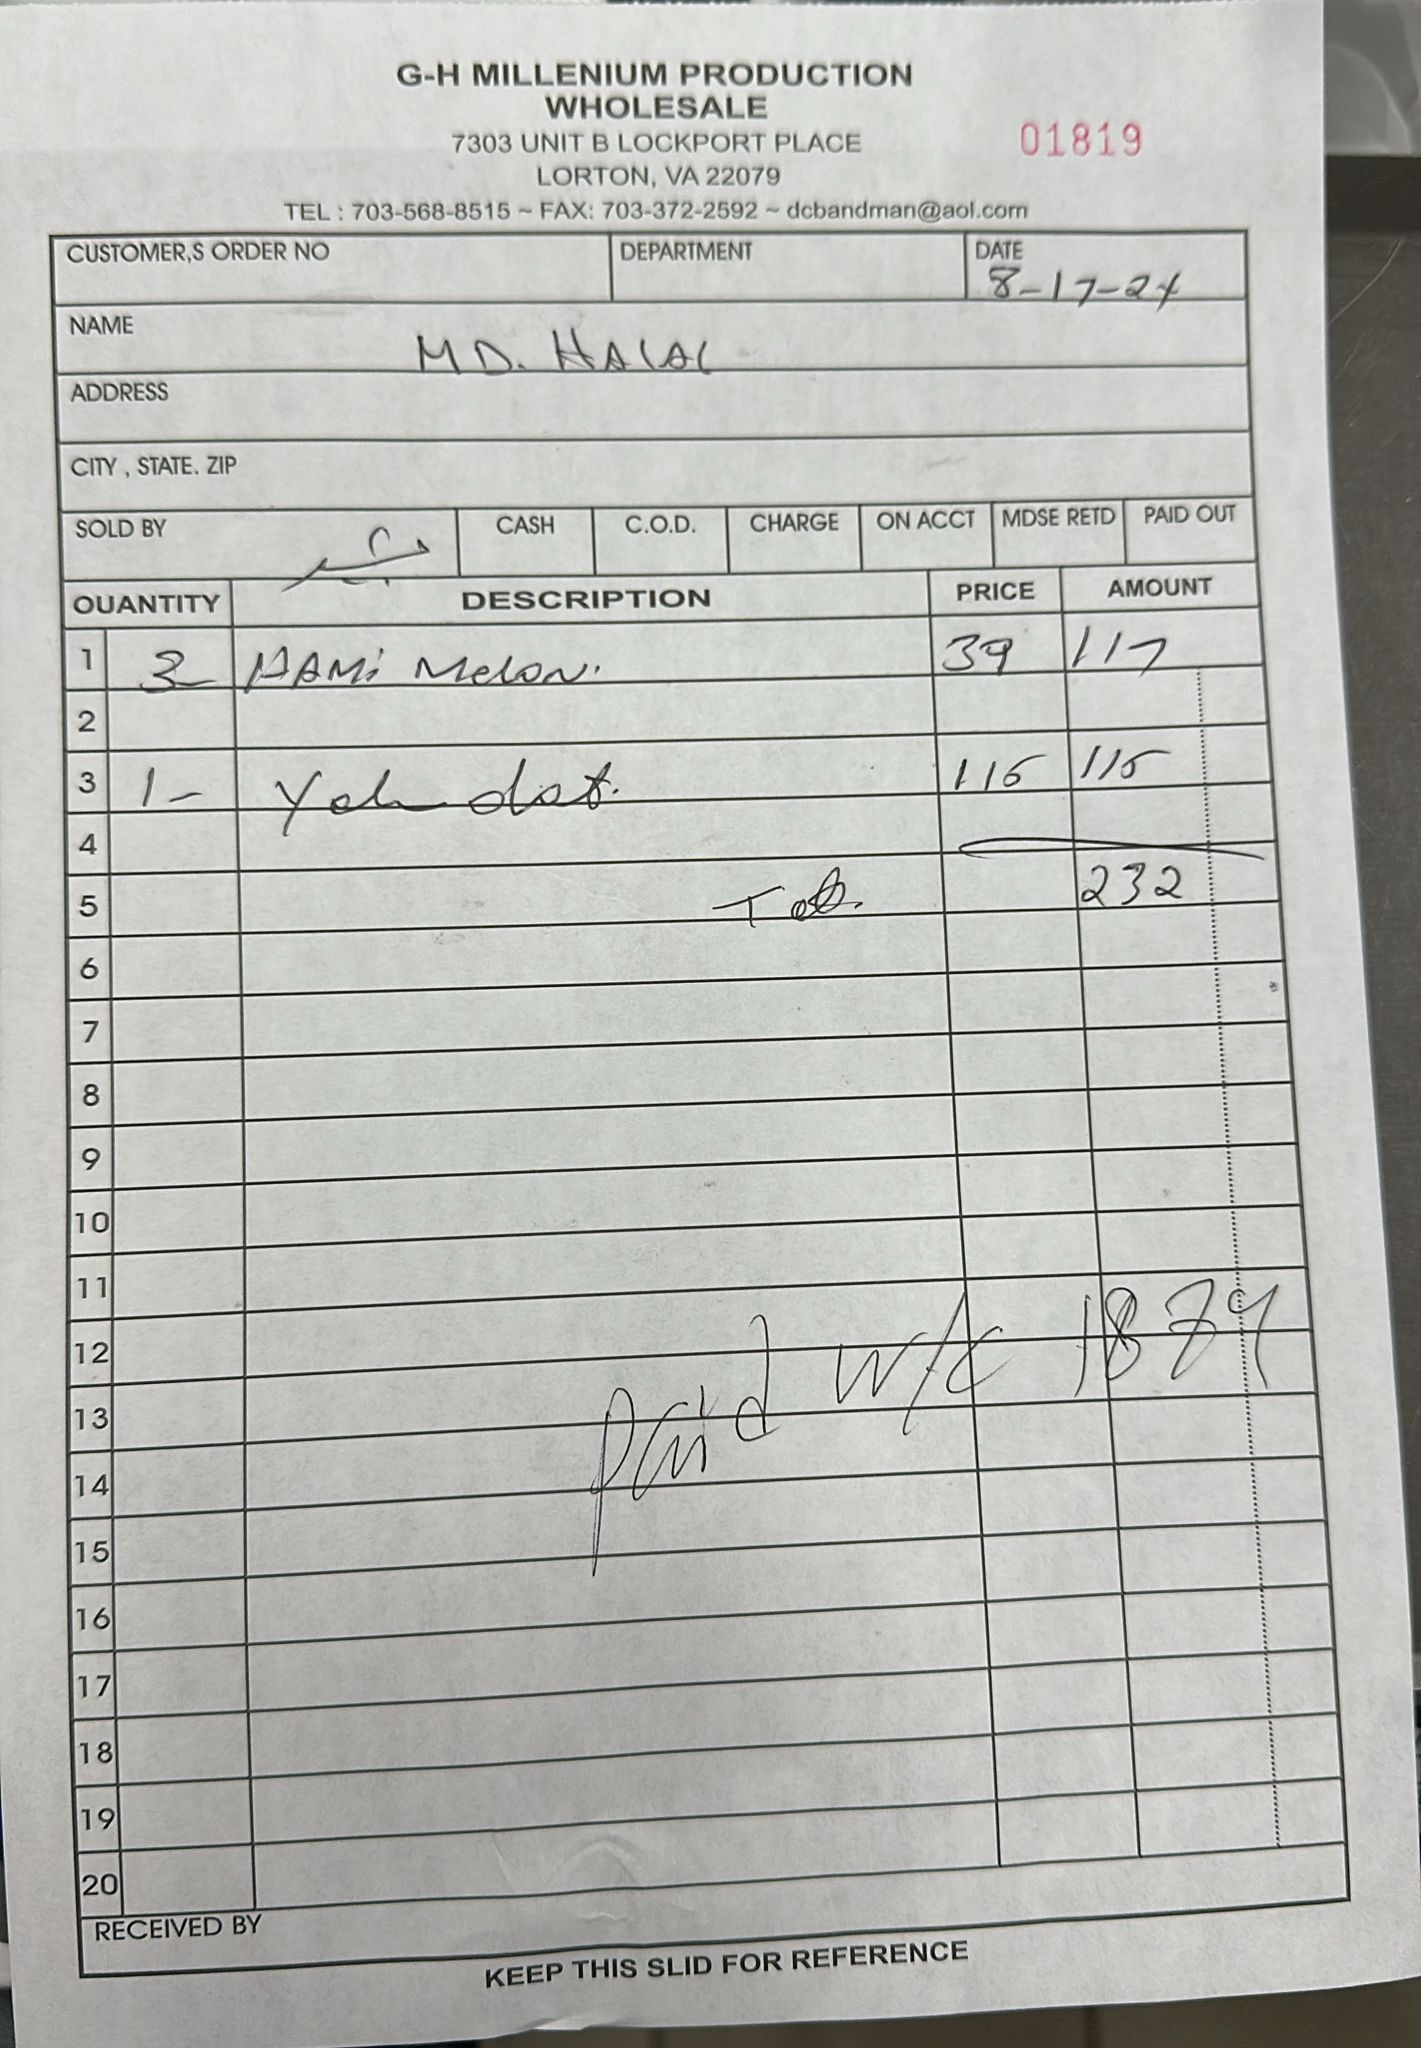 G-H MILLENIUM PRODUCTION
WHOLESALE
7303 UNIT B LOCKPORT PLACE
01819
LORTON, VA 22079
TEL : 703-568-8515 ~ FAX: 703-372-2592 ~ dcbandman@aol.com
CUSTOMER,S ORDER NO DEPARTMENT DATE
8-17-24
NAME MD. HALAL
ADDRESS
CITY , STATE. ZIP
SOLD BY CASH C.O.D. CHARGE ON ACCT MDSE RETD PAID OUT
QUANTITY DESCRIPTION PRICE AMOUNT
1 3 HAMi Melon. 39 117
2
3 1- 115 115
4
5 Tot. 232
6
7
8
9
10
11
12
paid w/c 1879
13
14
15
16
17
18
19
20
RECEIVED BY
KEEP THIS SLID FOR REFERENCE